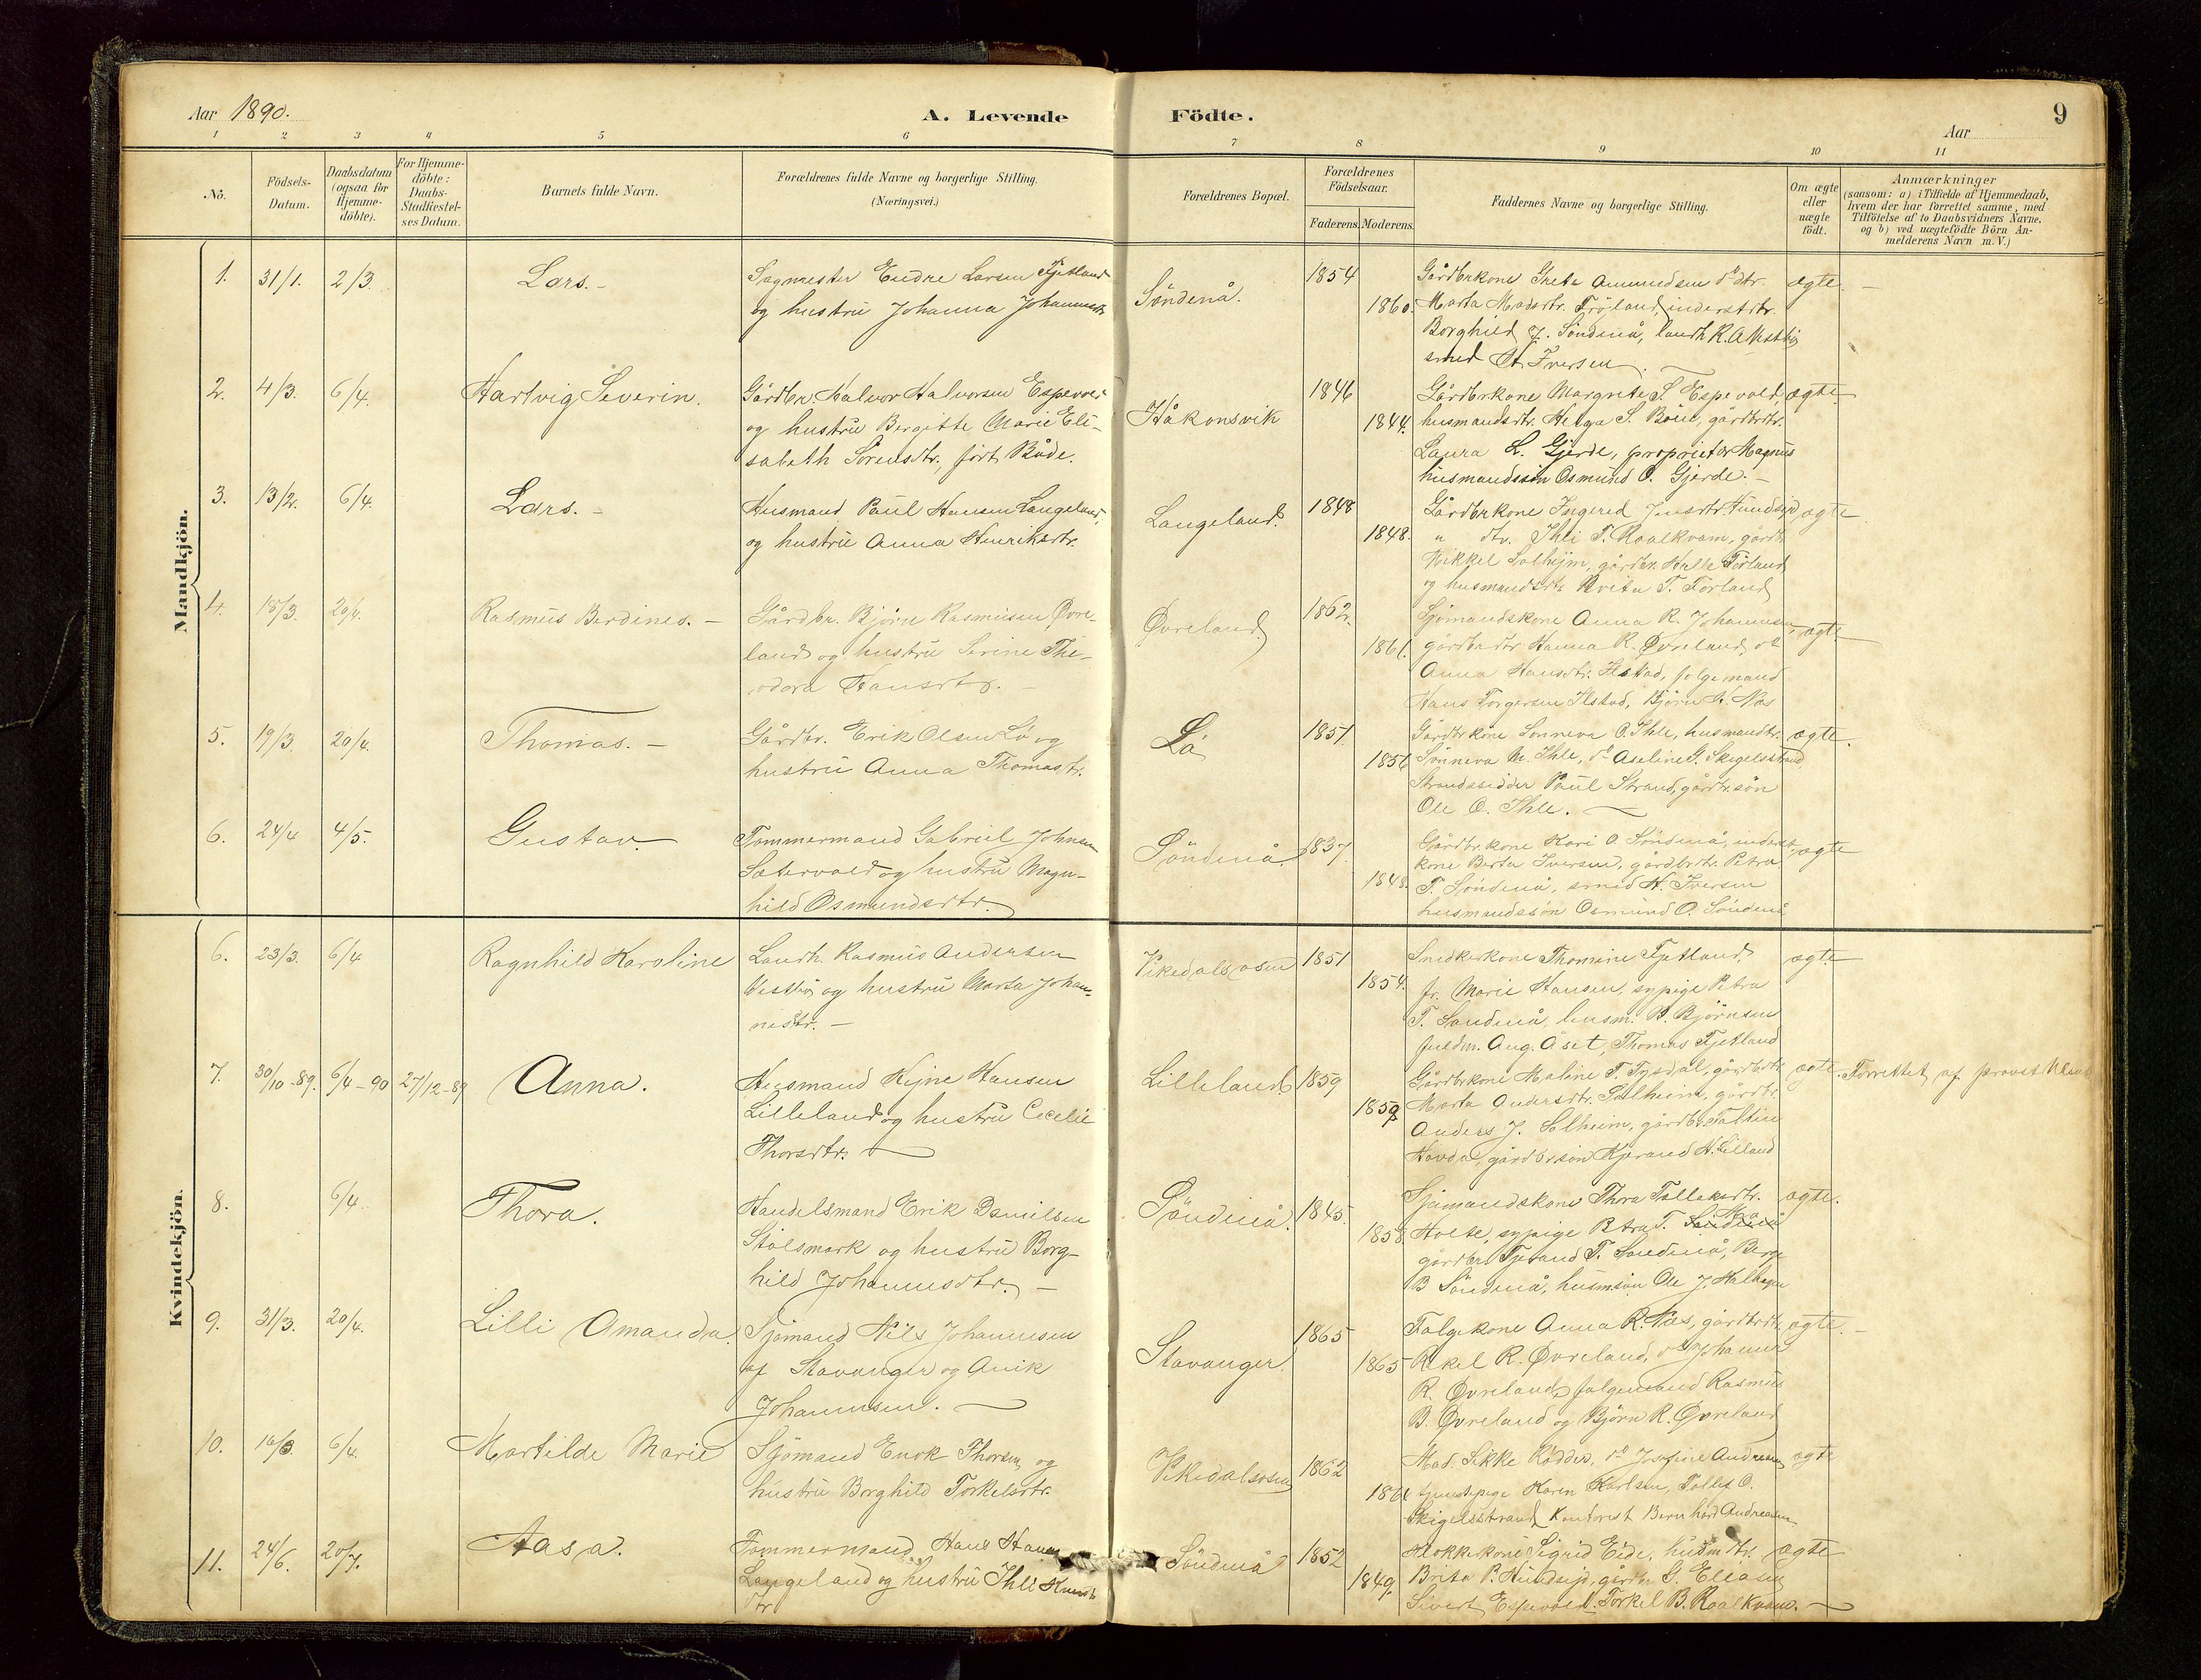 Aar 1890.
A. Levende Födte.
9
Aar
1 2 3 4 5 6 7 8 9 10 11
No.
Födsels-Datum.
Daabsdatum (ogsaa for Hjemme-döbte).
For Hjemme-döbte: Daabs-Stadfæstel-ses Datum.
Barnets fulde Navn.
Forældrenes fulde Navne og borgerlige Stilling.
(Næringsvei.)
Forældrenes Bopæl.
Forældrenes Födselsaar.
Faderens. Moderens.
Faddernes Navne og borgerlige Stilling.
Om ægte eller uægte födt.
Anmærkninger
(saasom: a) i Tilfælde af Hjemmedaab,
hvem der har forrettet samme, med
Tilföielse af to Daabsvidners Navne,
og b) ved uægtefödte Börn An-
melderens Navn m. V.)
Mandkjön.
1. 31/1. 2/3. Lars. -
Sagmester Endre Larsen Fjetland
og hustru Johanna Johannesdtr
Söndenå.
1854
1860.
Gårdbrkone Greta Amundsen do dtr.
Marta Madsdtr. Fröland, inderstdtr.
Borghild J. Söndenå, landh. R. A. Vestbö
smed H. Iversen.
ægte. -
2. 4/3. 6/4. Hartvig Severin.
Gårdbr. Halvor Halvorsen Espevold
og hustru Bergitte Marie Eli-
sabeth Sörensdtr, födt Både.
Håkonsvik
1846
1844.
Gårdbrkone Margrete S. Espevold,
husmandsdtr. Helga S. Böen, gårdbrdtr.
Laura L. Gjerde, proprietör Magnus
husmandssön Osmund O. Gjerde. -
ægte
3. 13/2. 6/4. Lars. -
Husmand Paul Hansen Langeland,
og hustru Anna Henriksdtr.
Langeland.
1848
1848.
Gårdbrkone Ingerid Jensdtr. Hundseid
" dtr. Ihli T. Roalkvam, gårdb.
Mikkel Solheim, gårdbr. Halle Förland
og husmandsdtr Brita T. Förland
ægte
4. 18/3. 20/4. Rasmus Berdines. -
Gårdbr. Björn Rasmusen Øvre-
land og hustru Serine The-
odora Hansdtr. -
Øvreland
1862.
1861.
Sjömandskone Anna R. Johannesen,
gårdbrdtr Hanna R. Øvreland, do
Anna Hansdtr. Ilstad, folgemand
Hans Torgersen Ilstad, Björn A. Nås
ægte
5. 19/3. 20/4. Thomas. -
Gårdbr. Erik Olsen Lå og
hustru Anna Thomasdtr.
Lå
1851
1856
Gårdbrkone Sönneva O. Ihle, husmandsdtr.
Sönneva M. Ihle, do Aseline G. Skigelsstrand,
Strandsidder Paul Strand, gårdbrsön
Ole O. Ihle.
ægte.
6. 24/4 4/5. Gustav.
Tömmermand Gabriel Johnsen
Sætervold og hustru Magn-
hild Osmundsdtr.
Söndenå
1837.
1848.
Gårdbrkone Kari O. Söndenå, inderst-
kone Berta Iversen, gårdbrdtr. Petra
T. Söndenå, smed H. Iversen
husmandssön Osmund O. Söndenå
ægte
Kvindekjön.
6. 23/3. 6/4 Ragnhild Karoline
Landh. Rasmus Andersen
Vestbö og hustru Marta Johan-
nesdtr. -
Vikedalsosen
1851
1854.
Snedkerkone Thomine Fjetland,
fr. Marie Hansen, sypige Petra
T. Söndenå, husm. B. Björnsen
fuldm. Aug. Åset, Thomas Fjetland
ægte
7. 30/10-89. 6/4-90 27/12-89 Anna.
Husmand Reine Hansen
Lilleland og hustru Cecelie
Thorsdtr.
Lilleland
1859
1859
Gårdbrkone Maline T. Tysdal, gårdbrdtr
Marta Andersdtr. Solheim, gårdbr.
Anders J. Solheim, gårdbr. Faltin
Hovda, gårdbrsön Kjerand H. Lilland
ægte. Forrettet af provst
8. 6/4. Thora.
Handelsmand Erik Danielsen
Stölsmark og hustru Borg-
hild Johannesdtr. -
Söndenå.
1845.
1858
Sjömandskone Thora Tollaksdtr.
Holte, sypige Petra T. Söndenå
gårdbr. Tjerand T. Söndenå, Berge
B Söndenå, husmsön Ole J. Halhagen
ægte.
9. 31/3. 20/4. Lilli Amanda.
Sjömand Nils Johannsen
af Stavanger og Anik
Johannsen.
Stavanger
1865
1865
Folgekone Anna R. Nås, gårdbrdtr.
Rakel R. Øvreland, do Johanna
R. Øvreland, folgemand Rasmus
B. Øvreland og Björn R. Øvreland
ægte. -
10. 16/3. 6/4. Martilde Marie
Sjömand Enok Thorsen og
hustru Borghild Torkelsdtr.
Vikedalsosen
1862
1864
Mad. Sikke Rödder, do Josefine Andreasen
tjenstpige Karen Karlsen, Tollef O.
Skigelsstrand, Kontorist Bernhard Andreasen
ægte
11. 24/6. 20/7. Aasa.
Tömmermand Hans Hansen
Langeland og hustru Ihle Knuds-
dtr
Söndenå
1852
1849.
Klokkerkone Sigrid Eide, husmdtr.
Brita P. Hundseid, gårdbr G. Eliasen
Sivert Espevold. Torkel B. Roalkvam. -
ægte